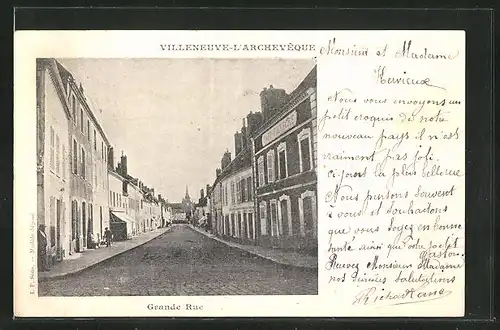 VILLENEUVE-L'ARCHEVÊQUE
Monsieur et Madame
Hervieux
Nous vous envoyons un
petit croquis de notre
nouveau pays il n'est
vraiment pas joli
la plus belle rue
Nous pensons souvent
à vous et souhaitons
que vous soyez en bonne
santé ainsi que votre petit
Gaston.
Recevez Monsieur Madame
nos sincères salutations
Grande Rue